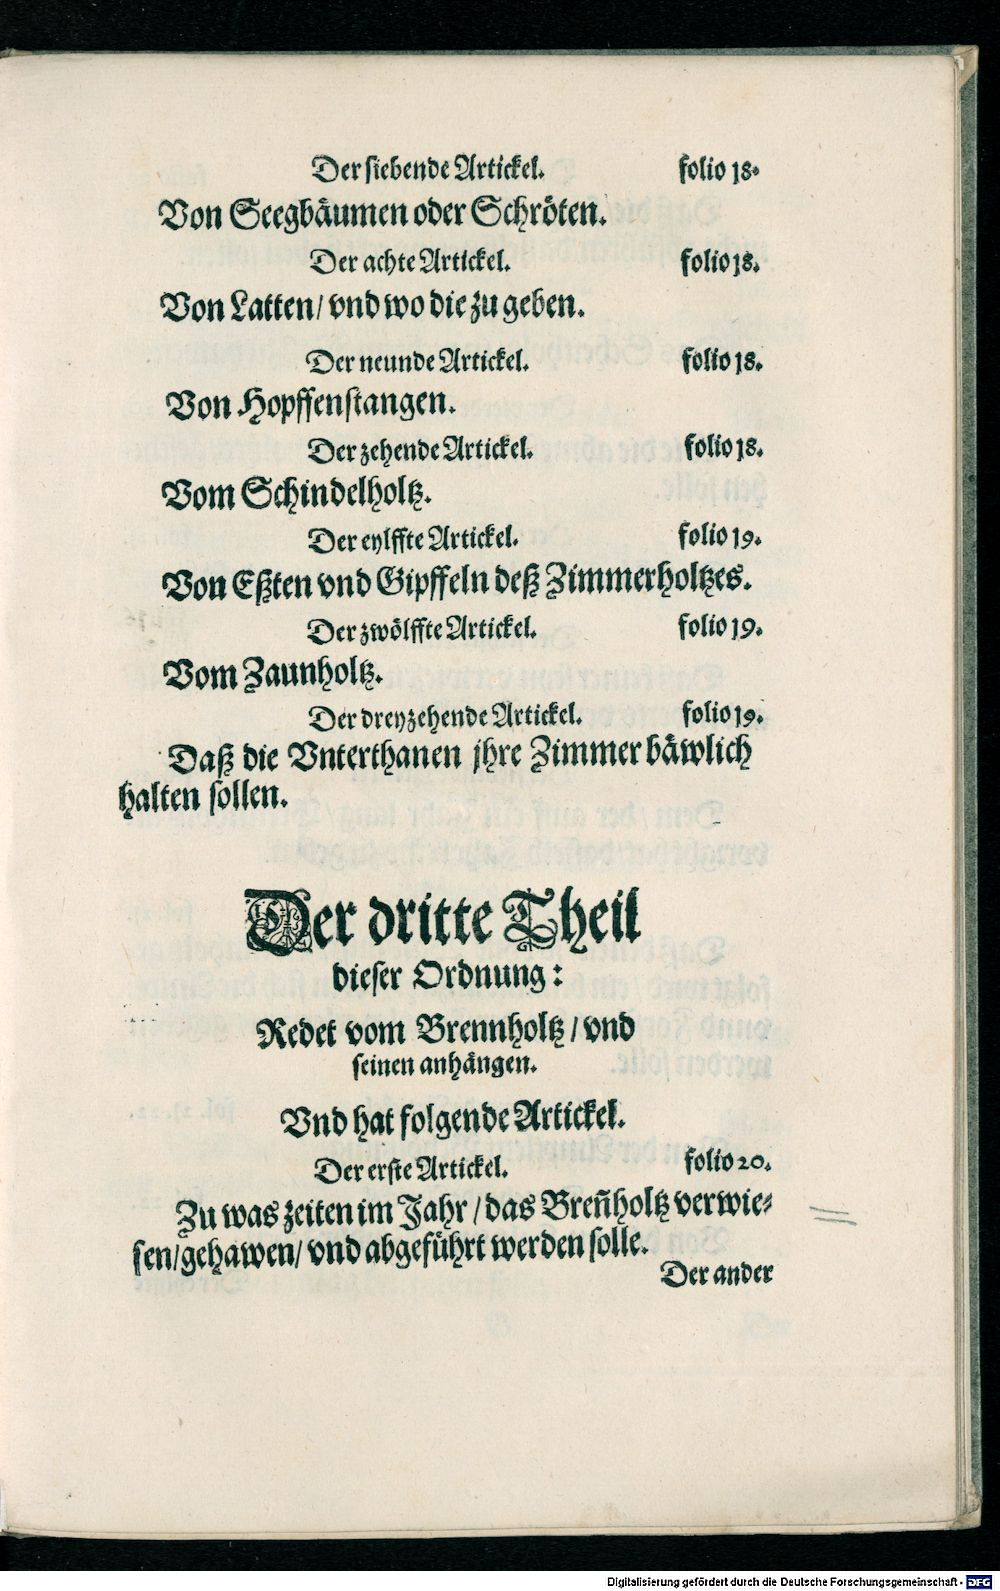 Der siebende Artickel. folio 18.
Von Seegbäumen oder Schröten.
Der achte Artickel. folio 18.
Von Latten/ vnd wo die zu geben.
Der neunde Artickel. folio 18.
Von Hopffenstangen.
Der zehende Artickel. folio 18.
Vom Schindelholtz.
Der eylffte Artickel. folio 19.
Von Eßten vnd Gipffeln deß Zimmerholtzes.
Der zwölffte Artickel. folio 19.
Vom Zaunholtz.
Der dreyzehende Artickel. folio 19.
Daß die Vnterthanen jhre Zimmer bäwlich
halten sollen.
Der dritte Theil
dieser Ordnung:
Redet vom Brennholtz/ vnd
seinen anhängen.
Vnd hat folgende Artickel.
Der erste Artickel. folio 20.
Zu was zeiten im Jahr/ das Breñholtz verwie-
sen/ gehawen/ vnd abgeführt werden solle.
Der ander
Digitalisierung gefördert durch die Deutsche Forschungsgemeinschaft - DFG